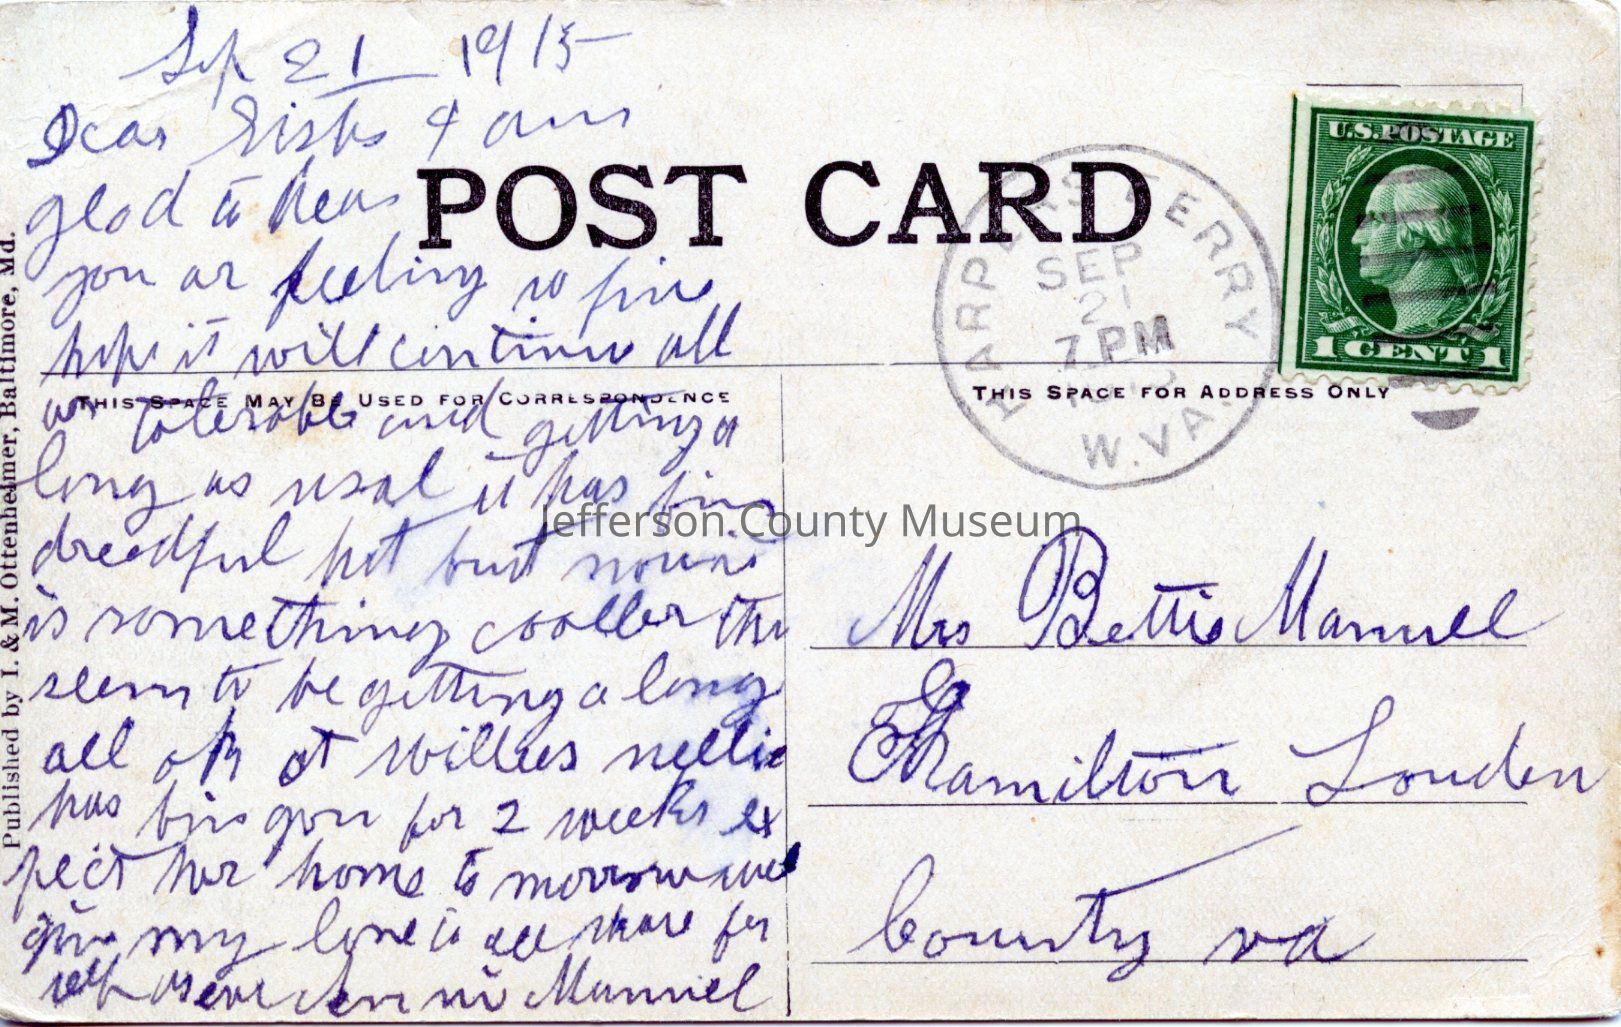 Sep 21 1915
Dear Sister & am
glad to hear
POST CARD
you ar feeling so fine
hope it will continue all
THIS SPACE MAY BE USED FOR CORRESPONDENCE
ar tolerable and getting a
long as usal it has bin
dreedful hot but now it
is something cooller they
seem to be getting a long
all oh at Willies nellie
has bin gon for 2 weeks ex
pect her home to morrow well
give my love to all share for
self as ever Jennie Manuel
Published by I. & M. Ottenheimer, Baltimore, Md.
HARPERS FERRY
SEP
21
7 PM
W. VA.
U.S. POSTAGE
1 CENT 1
THIS SPACE FOR ADDRESS ONLY
Jefferson County Museum
Mrs Bettie Manuel
Hamilton Louden
County va